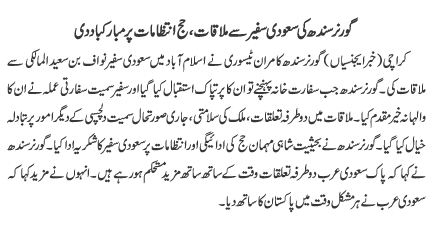 گورنر سندھ کی سعودی سفیر سے ملاقات، حج انتظامات پر مبارکباد دی
کراچی (خبر ایجنسیاں) گورنر سندھ کامران ٹیسوری نے اسلام آباد میں سعودی سفیر نواف بن سعید المالکی سے
ملاقات کی۔ گورنر سندھ جب سفارت خانہ پہنچے تو ان کا پر تپاک استقبال کیا گیا اور سفیر سمیت سفارتی عملہ نے ان کا
والہانہ خیر مقدم کیا۔ ملاقات میں دو طرفہ تعلقات، ملک کی سلامتی، جاری صورتحال سمیت دلچسپی کے دیگر امور پر تبادلہ
خیال کیا گیا۔ گورنر سندھ نے بحیثیت شاہی مہمان حج کی ادائیگی اور انتظامات پر سعودی سفیر کا شکریہ ادا کیا۔ گورنر سندھ
نے کہا کہ پاک سعودی عرب دو طرفہ تعلقات وقت کے ساتھ ساتھ مزید مستحکم ہو رہے ہیں۔ انہوں نے مزید کہا کہ
سعودی عرب نے ہر مشکل وقت میں پاکستان کا ساتھ دیا۔